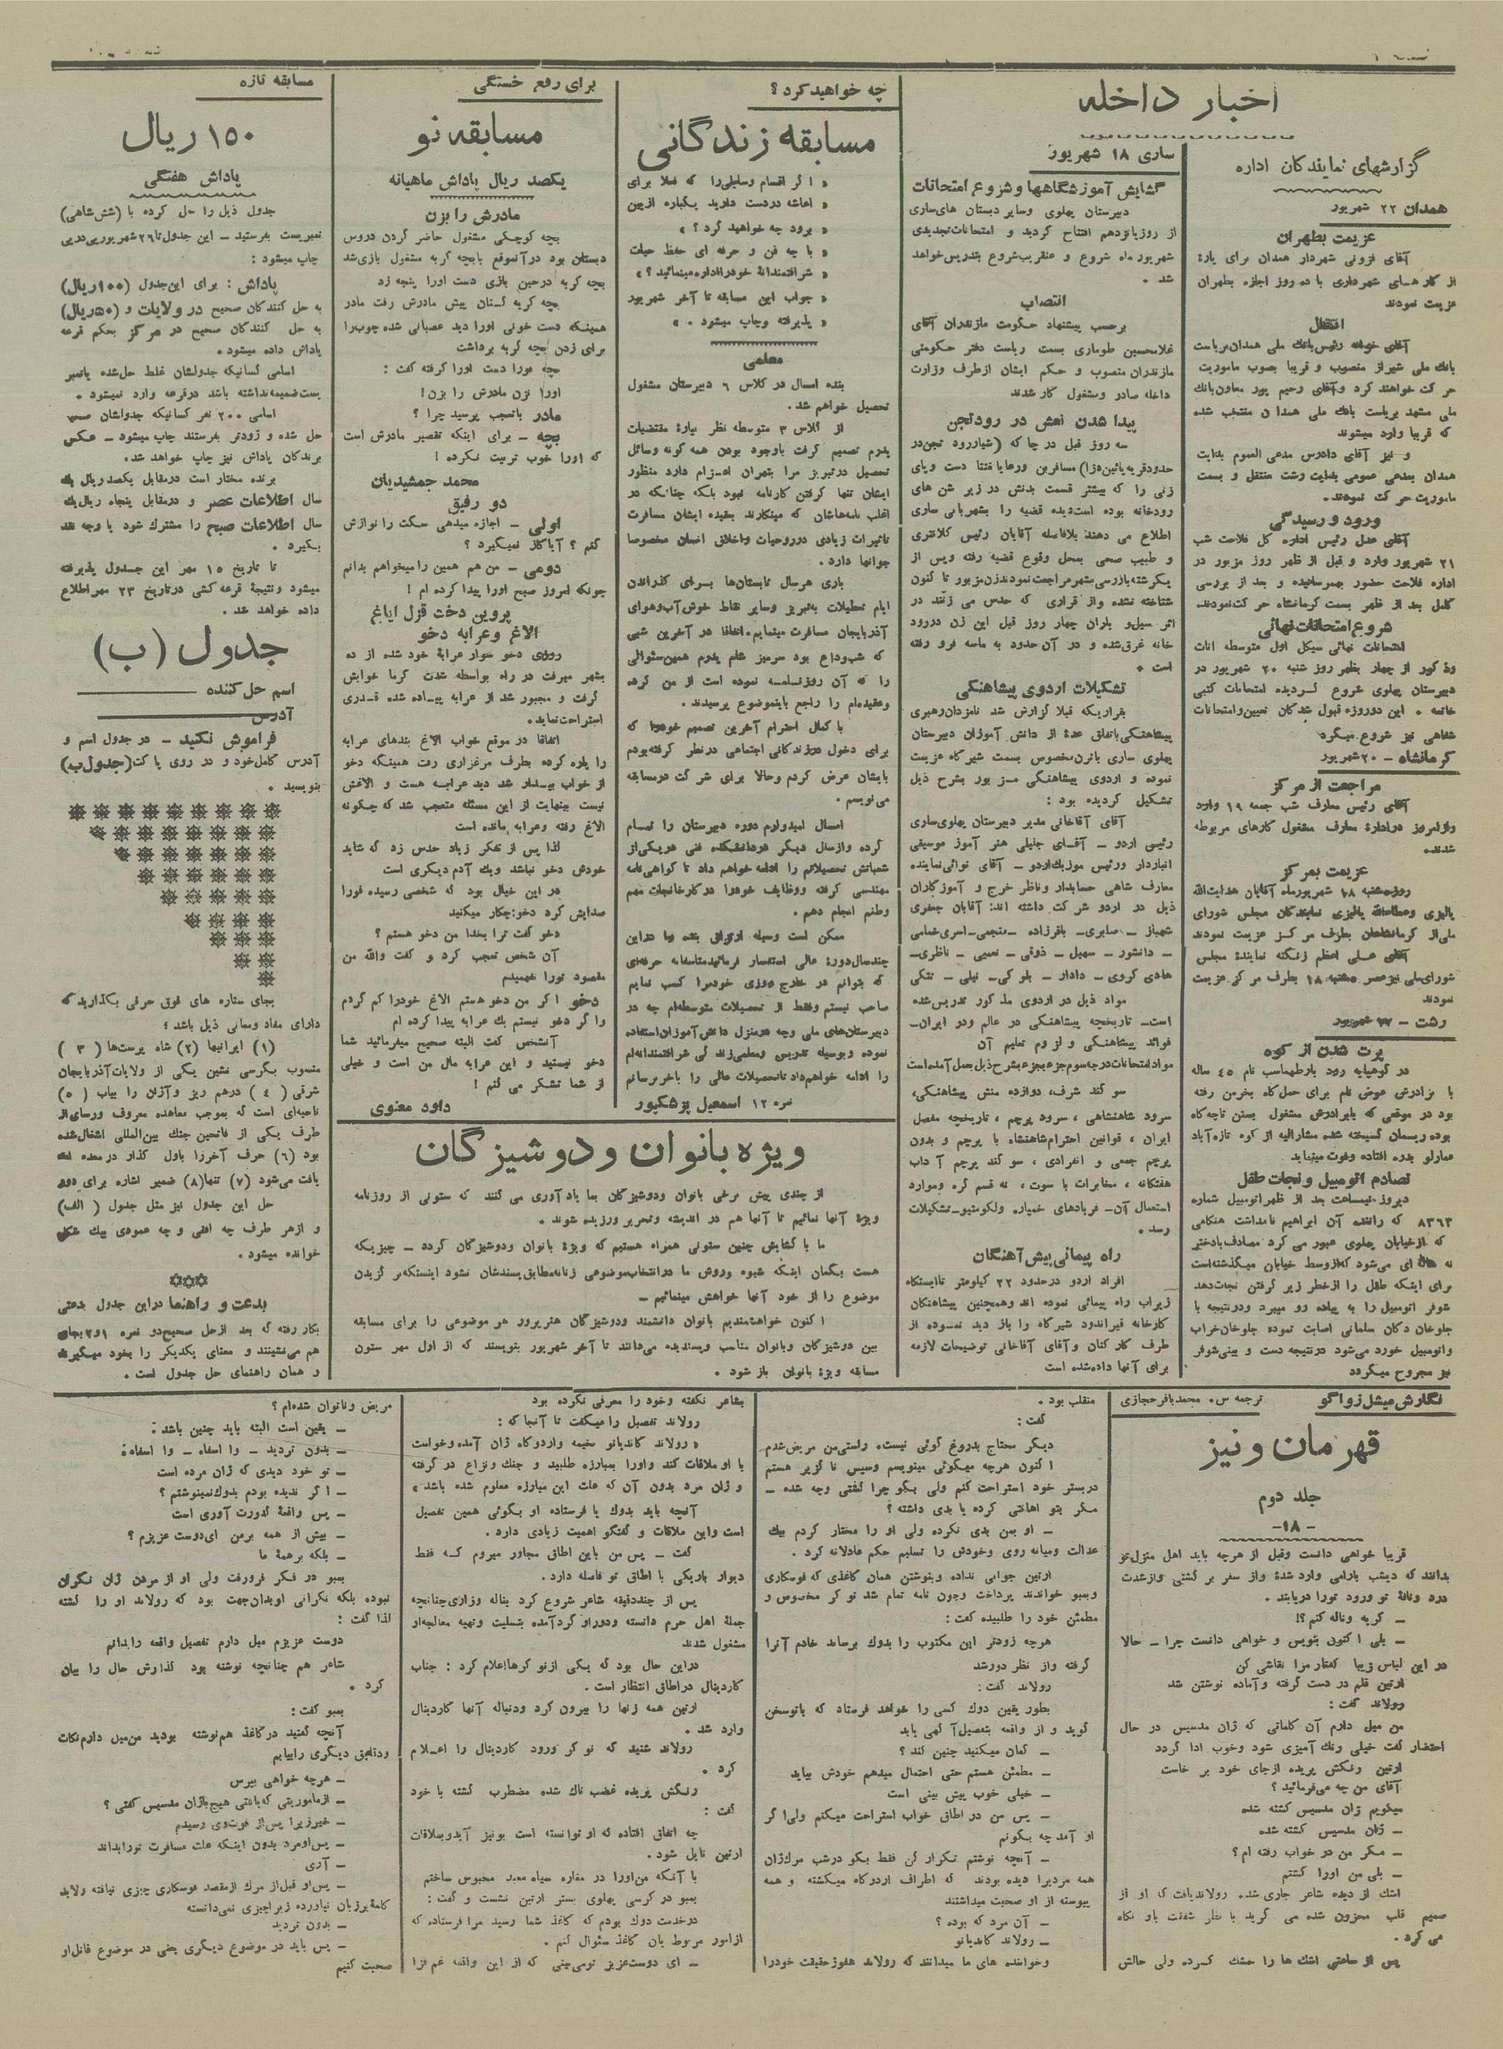 اخبار داخله
گزارشهای نمایندگان اداره
همدان ۲۲ شهریور
عزیمت بطهران
آقای قزونی شهردار همدان برای پارۀ
از کارهای شهرداری با ده روز اجازه بطهران
عزیمت نمودند
انتقال
بانک ملی شیراز منصوب و قریباً بصوب ماموریت
حرکت خواهند کرد و آقای رحیم پور معاون بانک
ملی مشهد بریاست بانک ملی همدان منتخب شده
که قریباً وارد میشوند
و نیز آقای دادرس مدعی العموم بدایت
همدان بمدعی عمومی بدایت رشت منتقل و بسمت
ماموریت حرکت نمودند.
ورود و رسیدگی
آقای عدل رئیس اداره کل فلاحت شب
۲۱ شهریور وارد و قبل از ظهر روز مزبور در
اداره فلاحت حضور بهمرسانیده و بعد از بررسی
کامل بعد از ظهر بسمت کرمانشاه حرکت نمودند.
شروع امتحانات نهائی
امتحانات نهائی سیکل اول متوسطه اناث
وذکور از چهار بظهر روز شنبه ۲۰ شهریور در
دبیرستان پهلوی شروع گردیده امتحانات کتبی
خاتمه . این دوروزه قبول شدگان تعیین وامتحانات
شفاهی نیز شروع میگردد
کرمانشاه - ۲۰ شهریور
مراجعت از مرکز
آقای رئیس معارف شب جمعه ۱۹ وارد
واز امروز در ادارۀ معارف مشغول کارهای مربوطه
شدند.
عزیمت بمرکز
روز شنبه ۱۸ شهریور ماه آقایان هدایت الله
پالیزی وعطاءالله پالیزی نمایندگان مجلس شورای
ملی از کرمانشاهان بطرف مرکز عزیمت نمودند
آقای علی اعظم زنگنه نمایندۀ مجلس
نمودند
پرت شدن از کوه
در کوهپایه رود بار طهماسب نام ۴۵ ساله
با برادرش عوض نام برای حمل کاه بخرمن رفته
بود در موقعی که بابرادرش مشغول بستن تاچه کاه
بوده ریسمان گسیخته شده مشارالیه از کوه تازه آباد
عمارلو بدره افتاده وفوت مینماید
تصادم اتومبیل و نجات طفل
دیروز نیمساعت بعد از ظهر اتومبیل شماره
۸۳۶۳ که رانندۀ آن ابراهیم نام داشت هنگامی
که از خیابان پهلوی عبور می کرد مصادف بادختر
نه ساله ای می شود که ازوسط خیابان میگذشته است
برای اینکه طفل را از خطر زیر گرفتن نجات دهد
شوفر اتومبیل را به پیاده رو میبرد ودر نتیجه با
جلوخان دکان سلمانی اصابت نموده جلوخان خراب
واتومبیل خورد می شود در نتیجه دست و بینی شوفر
نیز مجروح میگردد
ساری ۱۸ شهریور
گشایش آموزشگاهها و شروع امتحانات
دبیرستان پهلوی وسایر دبستان های ساری
از روز پانزدهم افتتاح گردید و امتحانات تجدیدی
شهریور ماه شروع و عنقریب شروع بتدریس خواهد
شد .
انتصاب
برحسب پیشنهاد حکومت مازندران آقای
غلامحسین طوماری بسمت ریاست دفتر حکومتی
مازندران منصوب و حکم ایشان از طرف وزارت
داخله صادر ومشغول کار شدند
پیدا شدن نعش در رود تجن
سه روز قبل در چا که (شیاررود تجن در
حدود قریه پائین دزا) مسافرین ورعایا فتنا دست و پای
زنی را که بیشتر قسمت بدنش در زیر شن های
رودخانه بوده است دیده قضیه را بشهربانی ساری
اطلاع می دهند بلافاصله آقایان رئیس کلانتری
و طبیب صحی بمحل وقوع قضیه رفته وپس از
یکرشته بازرسی بشهر مراجعت نمودند زن مزبور تا کنون
شناخته نشده واز قراری که حدس می زنند در
اثر سیل و باران چهار روز قبل این زن در رود
خانه غرق شده و در آن حدود به ماسه فرو رفته
است .
تشکیلات اردوی پیشاهنگی
بقراریکه قبلا گزارش شد نامزدان رهبری
پیشاهنگی باتفاق عدۀ از دانش آموزان دبیرستان
پهلوی ساری باترن مخصوص بسمت شیرگاه عزیمت
نموده و اردوی پیشاهنگی مزبور بشرح ذیل
تشکیل گردیده بود :
آقای آقاخانی مدیر دبیرستان پهلوی ساری
رئیس اردو - آقای جلیلی هنر آموز موسیقی
انباردار ورئیس موزیک اردو - آقای نوائی نماینده
معارف شاهی حسابدار وناظر خرج و آموزگاران
ذیل در اردو شرکت داشته اند: آقایان جعفری
شهباز - صابری - باقرزاده - منجمی - اسری غمامی
- دانشور - سهیل - ذوقی - نعیمی - ناظری -
هادی کروی - دادار - بلوکی - نیلی - تتکی
مواد ذیل در اردوی مذکور تدریس شده
است - تاریخچه پیشاهنگی در عالم و در ایران -
فوائد پیشاهنگی و لزوم تعلیم آن
مواد امتحانات درجه سوم جزء بجزء بشرح ذیل بعمل آمده است
سو کند شرف، دوازده منش پیشاهنگی،
سرود شاهنشاهی ، سرود پرچم ، تاریخچه مفصل
ایران ، قوانین احترام شاهنشاه با پرچم و بدون
پرچم جمعی و انفرادی ، سو کند پرچم آداب
هفتگانه ، مخابرات با سوت ، نه قسم گره وموارد
استعمال آن - فریادهای خمیازه ولکوموتیو - تشکیلات
رسد .
راه پیمائی پیش آهنگان
افراد اردو در حدود ۲۲ کیلومتر تا ایستگاه
زیراب راه پیمائی نموده اند وهمچنین پیشاهنگان
کارخانه قیراندود شیرگاه را باز دید نموده از
طرف کارکنان وآقای آقاخانی توضیحات لازمه
برای آنها داده شده است
چه خواهید کرد ؟
مسابقه زندگانی
« اگر اقسام وسایلی را که فعلا برای
« اعاشه در دست دارید یکباره از بین
« برود چه خواهید کرد ؟ »
« با چه فن و حرفه ای حفظ حیات
« شرافتمندانۀ خود را اداره مینمائید ؟ »
« جواب این مسابقه تا آخر شهریور
« پذیرفته و چاپ میشود . »
معلمی
بنده امسال در کلاس ۶ دبیرستان مشغول
تحصیل خواهم شد.
از کلاس ۳ متوسطه نظر بپارۀ مقتضیات
پدرم تصمیم گرفت باوجود بودن همه گونه وسائل
تحصیل در تبریز مرا بتهران اعزام دارد منظور
ایشان تنها گرفتن کارنامه نبود بلکه چنانکه در
اغلب نامه هاشان که مینگارند بعقیده ایشان مسافرت
تاثیرات زیادی در روحیات واخلاق انسان مخصوصا
جوانها دارد .
باری هر سال تابستان ها برای گذراندن
ایام تعطیلات به تبریز وسایر نقاط خوش آب وهوای
آذربایجان مسافرت مینمایم. اتفاقا در آخرین شبی
که شب وداع بود سر میز شام پدرم همین سئوالی
را که آن روزنامه نموده است از من کرده
وعقیده ام را راجع باینموضوع پرسیدند.
با کمال احترام آخرین تصمیم خود را که
برای دخول در زندگانی اجتماعی در نظر گرفته بودم
بایشان عرض کردم وحالا برای شرکت در مسابقه
می نویسم .
امسال امیدوارم دوره دبیرستان را تمام
کرده واز سال دیگر در دانشکده فنی در یکی از
شعباتش تحصیلاتم را ادامه خواهم داد تا گواهی نامه
مهندسی گرفته ووظایف خود را در کارخانجات مهم
وطنم انجام دهم .
ممکن است وسیله ارتزاق بنده را در این
چند سال دورۀ عالی استفسار فرمائید متأسفانه حرفه ای
که بتوانم در خارج روزی خود را کسب نمایم
صاحب نیستم وفقط از تحصیلات متوسطه ام چه در
دبیرستان های ملی و چه در منزل دانش آموزان استفاده
نموده وبوسیله تدریس ومعلمی زندگی شرافتمندانه ام
را ادامه خواهم داد تا تحصیلات عالی را باخر برسانم
نمره ۱۲ اسمعیل پزشکپور
برای رفع خستگی
مسابقه نو
یکصد ریال پاداش ماهیانه
مادرش را بزن
بچه کوچکی مشغول حاضر کردن دروس
دبستان بود در آنموقع بابچه گربه مشغول بازی شد
بچه گربه در حین بازی دست اورا پنجه زد
بچه گربه کنان پیش مادرش رفت مادر
همینکه دست خونی اورا دید عصبانی شده چوب را
برای زدن بچه گربه برداشت
بچه فورا دست اورا گرفته گفت :
اورا نزن مادرش را بزن!
مادر باتعجب پرسید چرا ؟
بچه - برای اینکه تقصیر مادرش است
که اورا خوب تربیت نکرده !
محمد جمشیدیان
دو رفیق
اولی - اجازه میدهی سگت را نوازش
کنم ؟ آیا گاز نمیگیرد ؟
دومی - من هم همین را میخواهم بدانم
چونکه امروز صبح اورا پیدا کرده ام !
پروین دخت قزل ایاغ
الاغ وعرابه دخو
روزی دخو سوار عرابۀ خود شده از ده
بشهر میرفت در راه بواسطه شدت گرما خوابش
گرفت و مجبور شد از عرابه پیاده شده قدری
استراحت نماید .
اتفاقا در موقع خواب الاغ بندهای عرابه
را پاره کرده بطرف مرغزاری رفت همینکه دخو
از خواب بیدار شد دید عرابه هست و الاغش
نیست بینهایت از این مسئله متعجب شد که چگونه
الاغ رفته وعرابه مانده است
لذا پس از تفکر زیاد حدس زد که شاید
خودش دخو نباشد ویک آدم دیگری است
در این خیال بود که شخصی رسیده فورا
صدایش کرد دخو: چکار میکنید
دخو گفت ترا بخدا من دخو هستم ؟
آن شخص تعجب کرد و گفت والله من
مقصود تورا نفهمیدم
دخو اگر من دخو هستم الاغ خودرا گم کردم
وا گر دخو نیستم یک عرابه پیدا کرده ام
آنشخص گفت البته صحیح میفرمائید شما
دخو نیستید و این عرابه مال من است و خیلی
از شما تشکر می کنم !
داود معنوی
ویژه بانوان ودوشیزگان
از چندی پیش برخی بانوان ودوشیزگان بما یاد آوری می کنند که ستونی از روزنامه
ویژۀ آنها نمائیم تا آنها هم در اندیشه وتحریر ورزیده شوند .
ما با گشایش چنین ستونی همراه هستیم که ویژۀ بانوان ودوشیزگان گردد - چیزیکه
هست بگمان اینکه شیوه وروش ما در انتخاب موضوعی زنانه مطابق پسندشان نشود اینستکه بر گزیدن
موضوع را از خود آنها خواهش مینمائیم -
اکنون خواهشمندیم بانوان دانشمند ودوشیزگان هنرپرور هر موضوعی را برای مسابقه
بین دوشیزگان وبانوان مناسب وپسندیده می دانند تا آخر شهریور بنویسند که از اول مهر ستون
مسابقه ویژۀ بانوان باز شود .
مسابقه تازه
۱۵۰ ریال
پاداش هفتگی
جدول ذیل را حل کرده با (شش شاهی)
تمبر پست بفرستید - این جدول تا ۲۶ شهریور پی در پی
چاپ میشود :
پاداش : برای این جدول (۱۰۰ ریال)
به حل کنندگان صحیح در ولایات و (۵۰ ریال)
به حل کنندگان صحیح در مرکز بحکم قرعه
پاداش داده میشود .
اسامی کسانیکه جدولشان غلط حل شده یا تمبر
پست ضمیمه نداشته باشد در قرعه وارد نمیشود .
اسامی ۲۰۰ نفر کسانیکه جدولشان صحیح
حل شده و زودتر بفرستند چاپ میشود - عکس
برندگان پاداش نیز چاپ خواهد شد.
برنده مختار است در مقابل یکصد ریال یک
سال اطلاعات عصر و در مقابل پنجاه ریال یک
سال اطلاعات صبح را مشترک شود یا وجه نقد
بگیرد .
تا تاریخ ۱۵ مهر این جدول پذیرفته
میشود و نتیجۀ قرعه کشی در تاریخ ۲۳ مهر اطلاع
داده خواهد شد .
جدول (ب)
اسم حل کننده
آدرس
فراموش نکنید - در جدول اسم و
آدرس کامل خود و در روی پاکت (جدول ب)
بنویسید .
بجای ستاره های فوق حرفی بگذارید که
دارای مفاد ومعانی ذیل باشد ؛
(۱) ایرانیها (۲) شاه پرست ها ( ۳ )
منسوب بکرسی نشین یکی از ولایات آذربایجان
شرقی ( ۴ ) درهم ریز وآنرا بیاب ( ۵ )
ناحیه ای است که بموجب معاهده معروف ورسای از
طرف یکی از فاتحین جنگ بین المللی اشغال شده
بود (۶) حرف آخر را باول گذار در معده
یافت می شود (۷) تنها (۸) ضمیر اشاره برای دور
حل این جدول نیز مثل جدول ( الف)
و از هر طرف چه افقی و چه عمودی بیک شکل
خوانده میشود .
بدعت و راهنما در این جدول بدعتی
بکار رفته که بعد از حل صحیح دو نمره ۱و۲ بجای
هم می نشینند و معنای یکدیگر را بخود میگیرند
و همان راهنمای حل جدول است .
نگارش میشل زوا گو
ترجمه س. محمد باقر حجازی
قهرمان ونیز
جلد دوم
-۱۸-
قریبا خواهی دانست وقبل از هرچه باید اهل منزل تو
بدانند که دیشب بارامی وارد شدۀ واز سفر بر گشتی واز شدت
درد ونالۀ تو ورود تورا دریابند .
- گریه وناله کنم ؟!
- بلی اکنون بنویس و خواهی دانست چرا - حالا
در این لباس زیبا گفتار مرا نقاشی کن
ارتین قلم در دست گرفته وآماده نوشتن شد
رولاند گفت :
من میل دارم آن کلماتی که ژان مدسیس در حال
احتضار گفت خیلی رنگ آمیزی شود وخوب ادا گردد
ارتین رنگش پریده از جای خود بر خاست
آقای من چه می فرمائید ؟
میگویم ژان مدسیس کشته شده
- ژان مدسیس کشته شده
- مگر من در خواب رفته ام ؟
- بلی من اورا کشتم
اشک از دیده شاعر جاری شد . رولاند یافت که او از
صمیم قلب محزون شده می گرید با نظر شفقت باو نگاه
می کرد .
پس از ساعتی اشک ها را خشک کرده ولی حالش
منقلب بود .
گفت :
دیگر محتاج بدروغ گوئی نیست. راستی من مریض شدم
اکنون هرچه میگوئی مینویسم وسپس نا گزیر هستم
در بستر خود استراحت کنم ولی بگو چرا کشتی وچه شده -
مگر بتو اهانتی کرده یا بدی داشته ؟
- او بمن بدی نکرده ولی او را مختار کردم بیک
عدالت ومیانه روی وخودش را تسلیم حکم عادلانه کرد .
ارتین جوابی نداده وبنوشتن همان کاغذی که فوسکاری
وبمبو خواندند پرداخت وچون نامه تمام شد نو کر مخصوص و
مطمئن خود را طلبیده گفت :
هرچه زودتر این مکتوب را بدوک برساند خادم آنرا
گرفته واز نظر دور شد
رولاند گفت :
بطور یقین دوک کسی را خواهد فرستاد که باتو سخن
گوید و از واقعه بتفصیل آگهی یابد
- گمان میکنید چنین کند ؟
- مطمئن هستم حتی احتمال میدهم خودش بیاید
- خیلی خوب پیش بینی است
- پس من در اطاق خواب استراحت میکنم ولی اگر
او آمد چه بگویم
- آنچه نوشتم تکرار کن فقط بگو در شب مرگ ژان
همه مردیرا دیده بودند که اطراف اردو گاه میگشته و همه
پیوسته از او صحبت میداشتند
- آن مرد که بوده ؟
- رولاند کاندیانو
وخواننده های ما میدانند که رولاند هنوز حقیقت خودرا
بشاعر نگفته وخود را معرفی نکرده بود
رولاند تفصیل را میگفت تا آنجا که :
« رولاند کاندیانو بخیمه واردو گاه ژان آمده وخواست
با او ملاقات کند واورا بمبارزه طلبید و جنگ ونزاع در گرفته
و ژان مرد بدون آن که علت این مبارزه معلوم شده باشد »
آنچه باید بدوک یا فرستاده او بگوئی همین تفصیل
است واین ملاقات و گفتگو اهمیت زیادی دارد .
گفت - پس من باین اطاق مجاور میروم که فقط
دیوار باریکی با اطاق تو فاصله دارد .
پس از چند دقیقه شاعر شروع کرد بناله وزاری چنانچه
جملۀ اهل حرم دانسته ودور او گرد آمده بتسلیت وتهیه معالجه او
مشغول شدند
در این حال بود که یکی از نو کرها اعلام کرد : جناب
کاردینال در اطاق انتظار است .
ارتین همه زنها را بیرون کرد ودنباله آنها کاردینال
وارد شد .
رولاند شنید که نو کر ورود کاردینال را اعلام
کرد .
رنگش پریده غضب ناک شده مضطرب گشته با خود
گفت :
چه اتفاق افتاده که او توانسته است بونیز آید وبملاقات
ارتین نایل شود .
با آنکه من اورا در مغاره سیاه معبد محبوس ساختم
بمبو در کرسی پهلوی بستر ارتین نشست و گفت :
در خدمت دوک بودم که کاغذ شما رسید مرا فرستاده که
از امور مربوط بآن کاغذ سئوال کنم .
- ای دوست عزیز تو می بینی که از این واقعه غم فزا
مریض وناتوان شده ام ؟
- یقین است البته باید چنین باشد :
- بدون تردید - وا اسفاه - وا اسفاه :
- تو خود دیدی که ژان مرده است
- اگر ندیده بودم بدوک نمینوشتم ؟
- پس واقعۀ کدورت آوری است
- بیش از همه بر من ای دوست عزیزم ؟
- بلکه بر همۀ ما
بمبو در فکر فرورفت ولی او از مردن ژان نگران
نبوده بلکه نگرانی او بدان جهت بود که رولاند او را کشته
لذا گفت :
دوست عزیزم میل دارم تفصیل واقعه را بدانم
شاعر هم چنانچه نوشته بود گذارش حال را بیان
کرد .
بمبو گفت :
آنچه گفتید در کاغذ هم نوشته بودید من میل دارم نکات
ودقایق دیگری را بیابم
- هرچه خواهی بپرس
- از ماموریتی که باعثی هیچ باژان مدسیس گفتی ؟
- خیر زیرا پس از فوت وی رسیدم
- پس او مرد بدون اینکه علت مسافرت تورا بداند
- آری
- پس او قبل از مرگ از مقصد فوسکاری چیزی نیافته ولابد
کلمۀ بر زبان نیاورده زیرا چیزی نمی دانسته
- بدون تردید
- پس باید در موضوع دیگری یعنی در موضوع قاتل او
صحبت کنیم